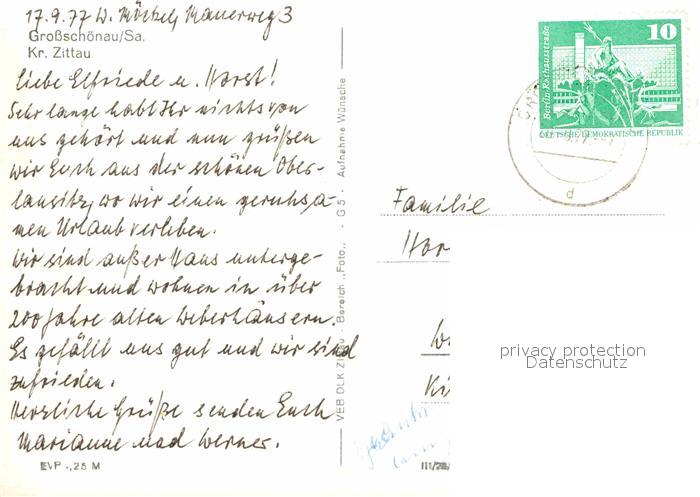 17.9.77 W. Möckel, Mauerweg 3
Großschönau/Sa.
Kr. Zittau
Liebe Elfriede u. Horst!
Sehr lange habt Ihr nichts von
uns gehört und nun grüßen
wir Euch aus der schönen Ober-
lausitz, wo wir einen geruhsa-
men Urlaub verleben.
Wir sind außer Haus unterge-
bracht und wohnen in über
200 Jahre alten Weberhäusern.
Es gefällt uns gut und wir sind
zufrieden.
Herzliche Grüße senden Euch
Marianne und Werner.
EVP -,25 M
VEB DLK Zittau · Bereich „Foto“ · G 5 · Aufnahme Wünsche
III/28/
10
Berlin, Rathausstraße
DEUTSCHE DEMOKRATISCHE REPUBLIK
d
Familie
Hor
privacy protection
Datenschutz